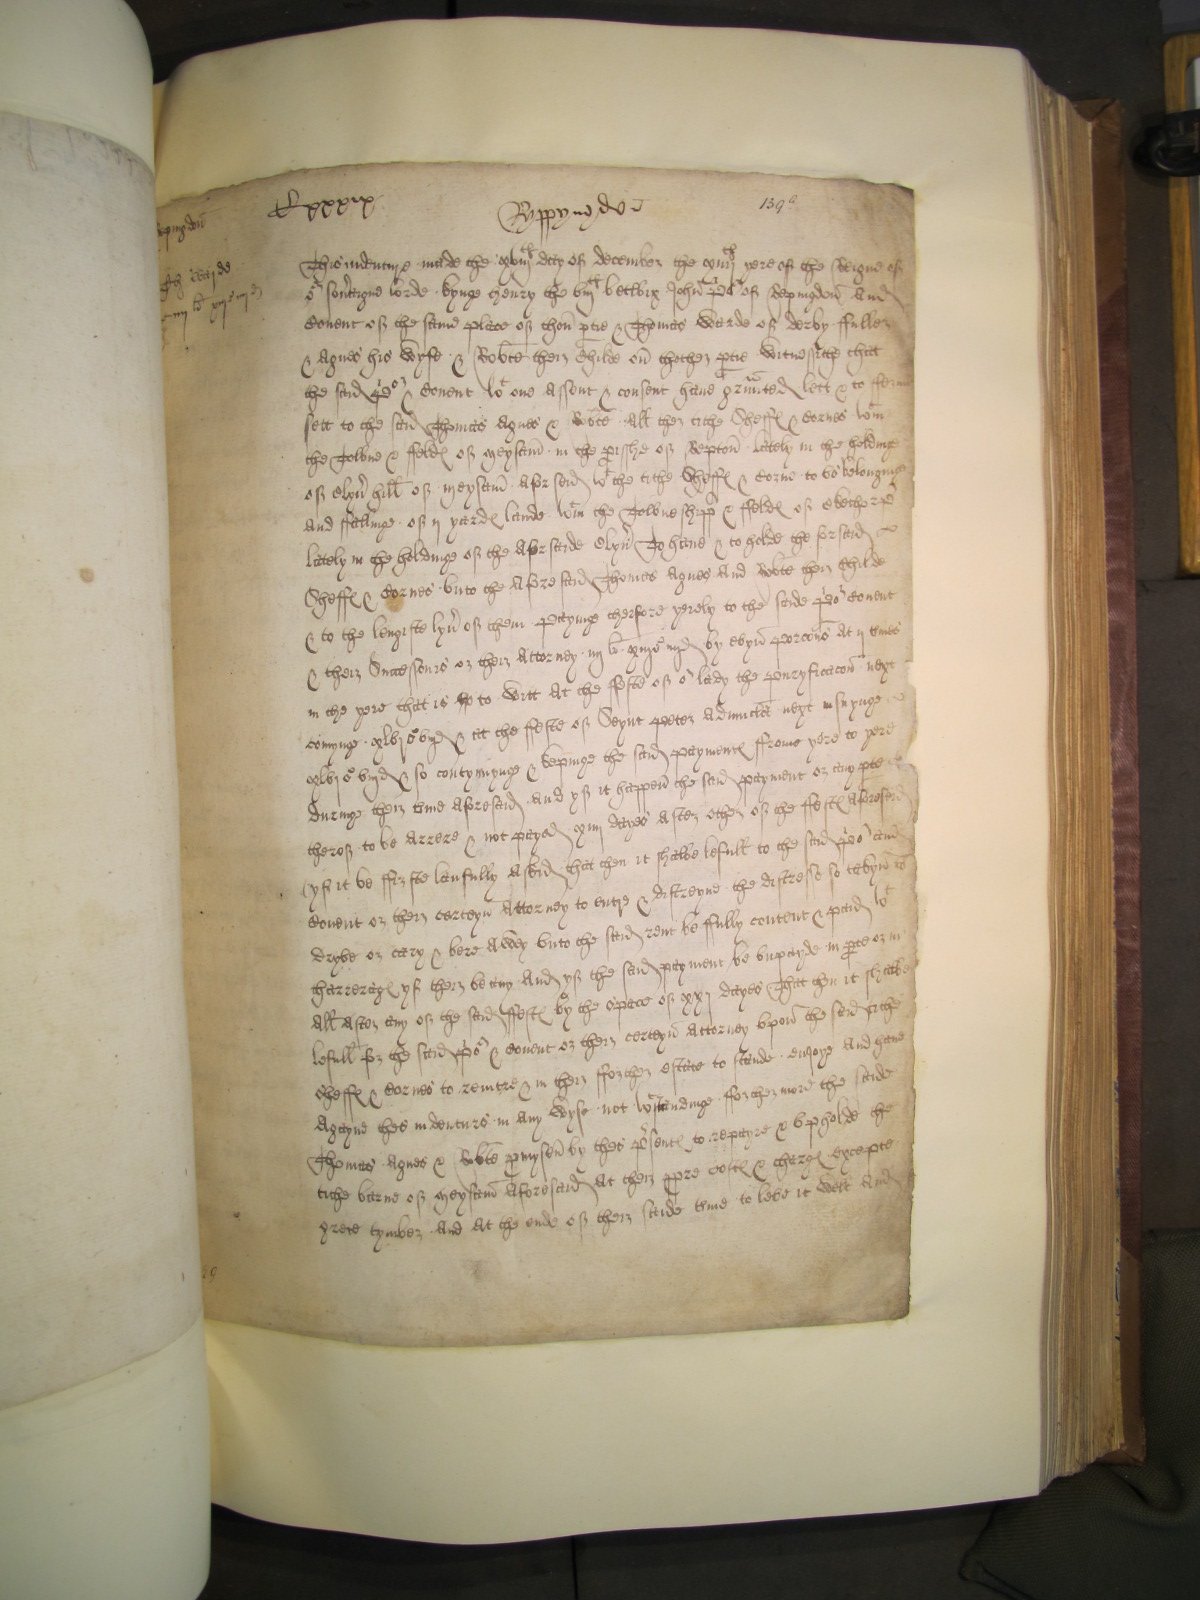 Cxxxix Ryppyngdon 139a
This indenture made the xviijth day of december the xiiijth yere of the Reigne of
or soūaigne lorde kynge henry the viijth betwix John p'or of Repingdon And
Couent of the same place of thon ptie & Thomas Warde of derby fuller
& Agnes his Wyfe & Robte their Childe on thother ptie Witnessithe that
the said p'or & Couent wt one Assent & consent haue graunted lett & to ferme
sett to the said Thomas Agnes & Robte All ther tithe Sheffes & Cornes wtin
the Towne & ffeldes of Meysam in the prisshe of Repton lately in the holdinge
of Elyn hill of Meysam Afor said wt the tithe Sheffes & Corne to vs belonginge
And ffallinge of ij yardes lande wtin the Towneshipp & ffeldes of
lately in the holdinge of the Aforsaide Elyn To haue & to holde the forsaid
Sheffes & Cornes vnto the Aforesaid Thomas Agnes And Robte ther Childe
& to the lengiste lyu of them Payinge therfore yerely to the saide p'or Couent
& their Successours or their Attorney iiij li xiijs iiijd by evyn porcons At ij times
in the yere that is to witt At the ffeste of or lady the puryficacon next
comynge xlvjs viijd & at the ffeste of Seynt peter Aduincla next insuynge
xlvjs viijd & so contynuynge & kepinge the said paymentes ffrome yere to yere
duringe their time Aforesaid And yf it happen the said payment or any pte
therof to be Arrere & not payed xiiij dayes After ether of the ffestes Aforesaid
(yf it be ffirste laufully Askid that then it shalbe lefull to the said p'or and
Couent or their certeyn Attorney to entre & distreyne the distresse so takyn to
dryve or cary & bere Away vnto the said rent be ffully content & paid wt
tharrerages yf ther be any And yf the said payment be vnpayde in pte or in
All After any of the said ffestes by the space of xxj dayes That then it shalbe
lefull for the said p'or & Couent or their certeyn Attorney vpon the said tithe
Sheffes & Cornes to reentre & in their fforther estate to stande enioye And haue
Agayne thes indenturs in any Wyse not wtstandinge fforthermore the saide
Thomas Agnes & Robte pmysen by thes psentes to repayre & vpholde the
tithe barne of Meysam Aforesaid At their ppre costes & charges excepte
grete tymber And At the ende of their saide time to leve it Well And